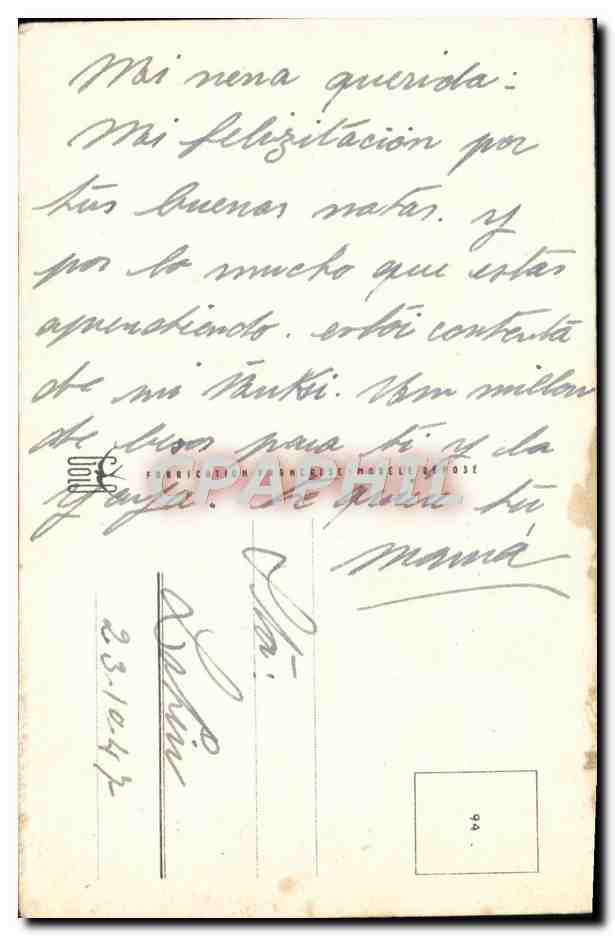 Mi nena querida:
Mi felizitación por
tus buenas notas. y
por lo mucho que estás
aprendiendo. estoi contenta
de mi Um millon
de besos para ti y la
Yaya. te quiere tu
mamá
FABRICATION FRANÇAISE MODÈLE DÉPOSÉ
CPAPHIL
Sta.
23.10.47
94.